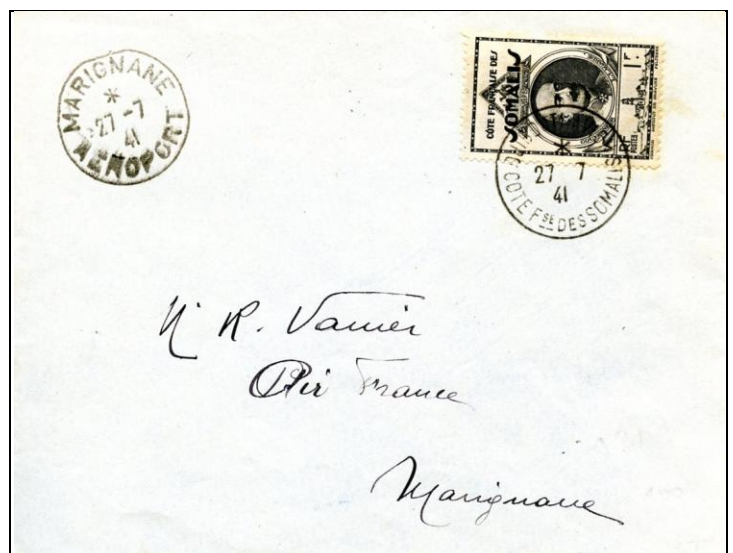 MARIGNANE
*
27-7
41
AÉROPORT
CÔTE FRANÇAISE DES
SOMALIS
1F
*
27 7
41
CÔTE FSE DES SOMALIS
R. Vanier
Air France
Marignane